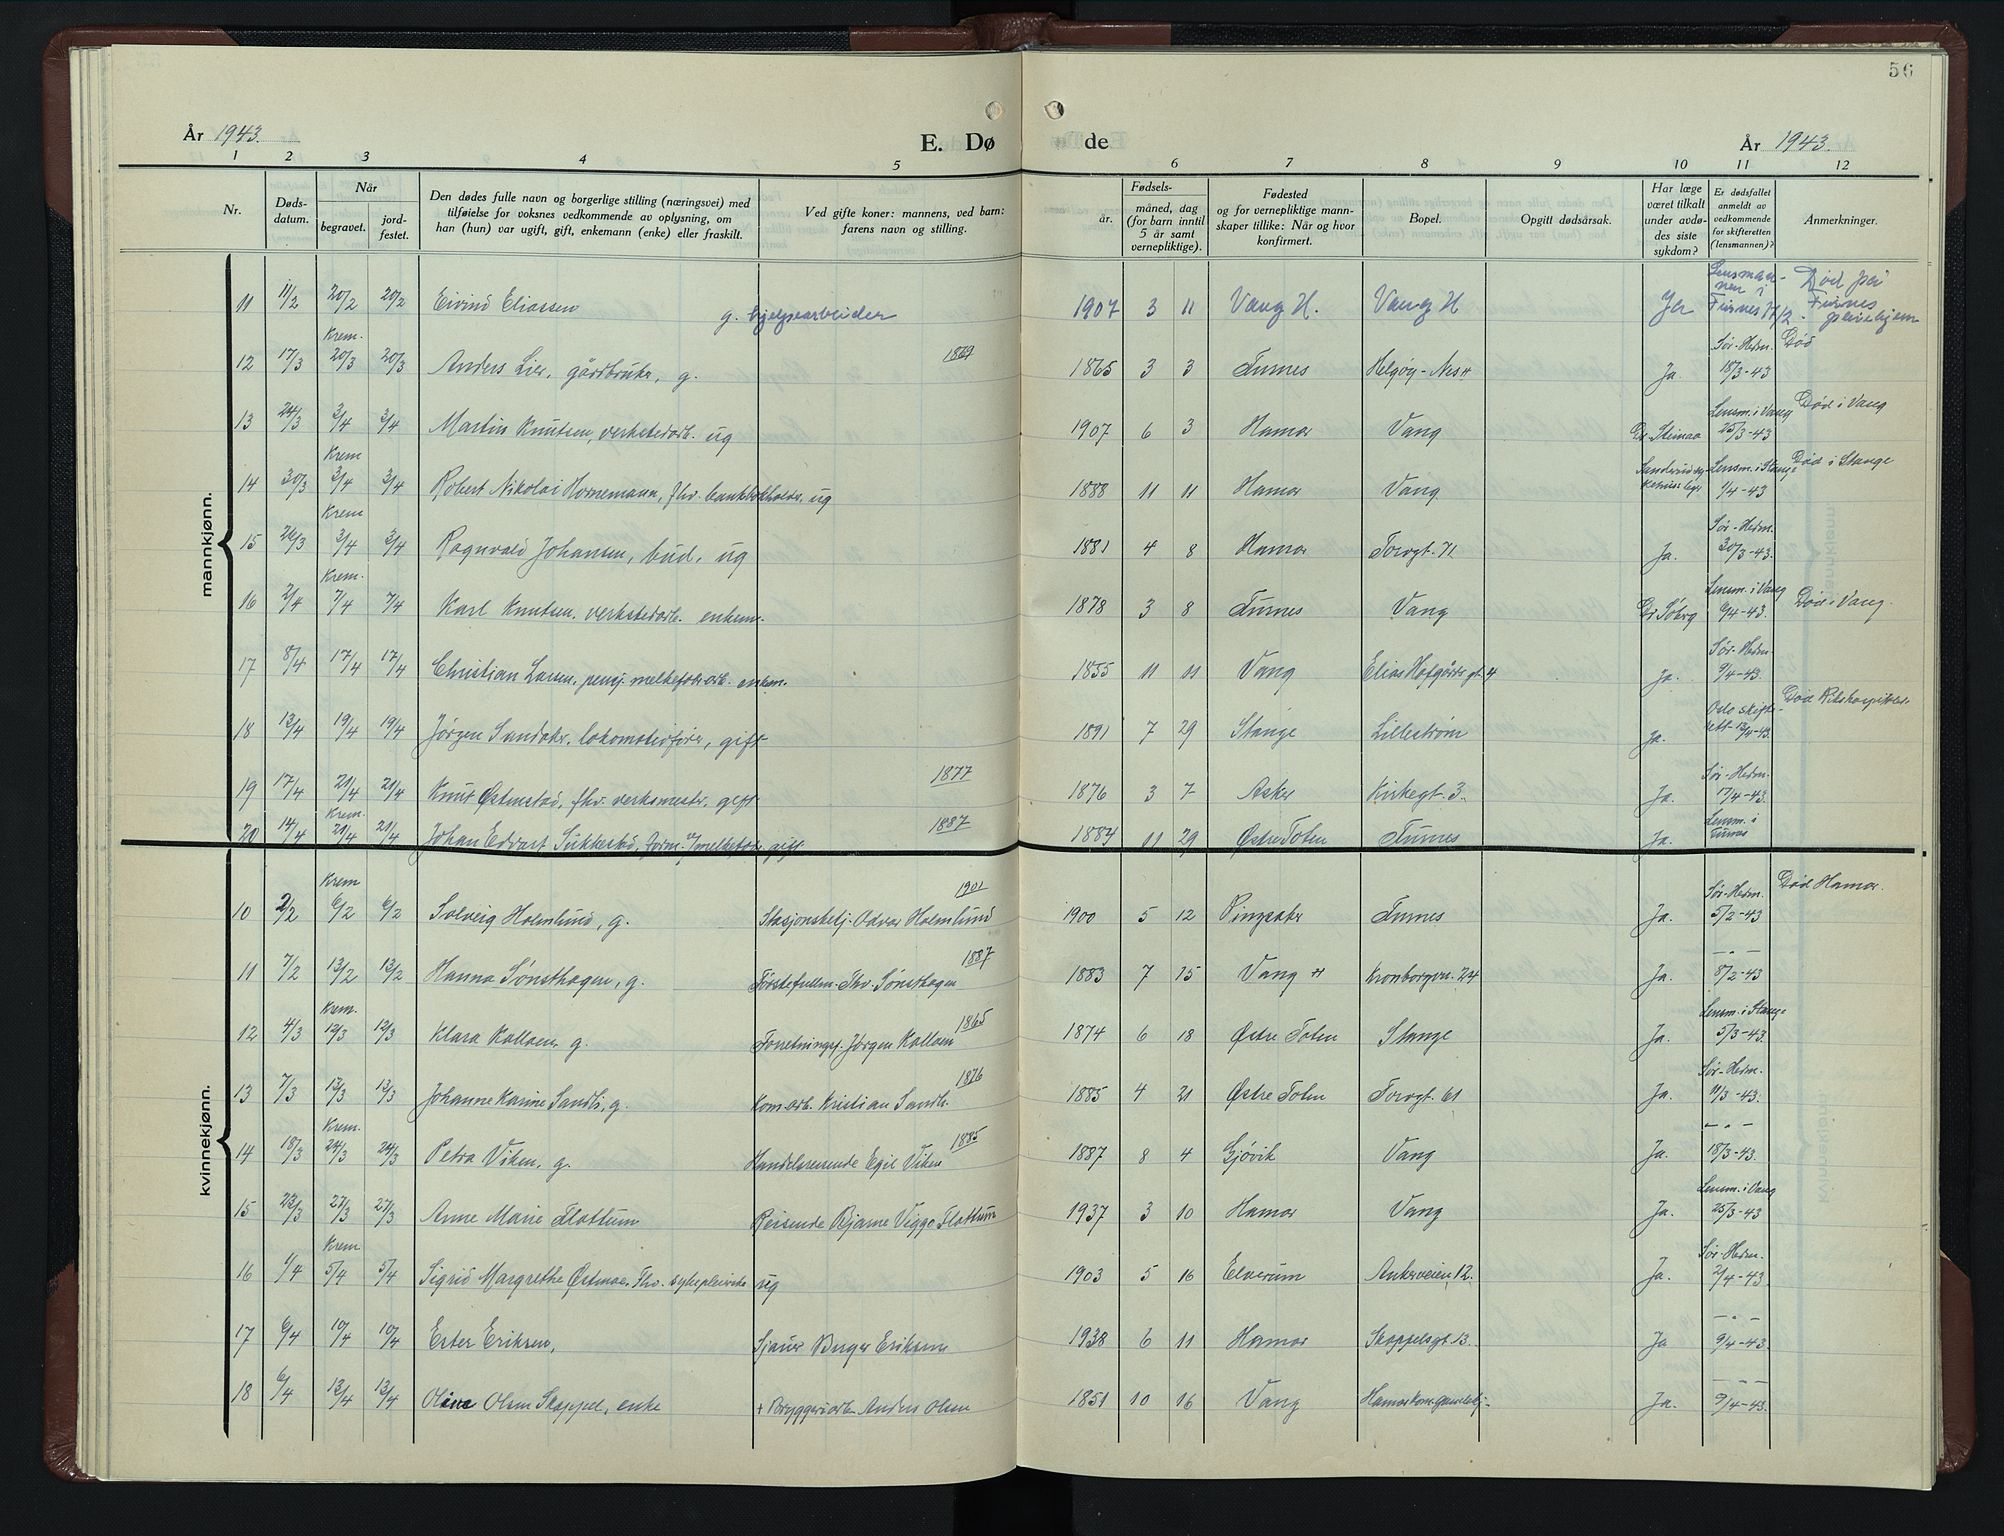 56
År 1943.
E. Dø de
År 1943.
1 2 3 4 5 6 7 8 9 10 11 12
Nr.
Døds-
datum.
Når
begravet.
jord-
festet.
Den dødes fulle navn og borgerlige stilling (næringsvei) med
tilføielse for voksnes vedkommende av oplysning, om
han (hun) var ugift, gift, enkemann (enke) eller fraskilt.
Ved gifte koner: mannens, ved barn:
farens navn og stilling.
Fødsels-
år.
måned, dag
(for barn inntil
5 år samt
vernepliktige).
Fødested
og for vernepliktige mann-
skaper tillike: Når og hvor
konfirmert.
Bopel.
Opgitt dødsårsak.
Har læge
været tilkalt
under avdø-
des siste
sykdom?
Er dødsfallet
anmeldt av
vedkommende
for skifteretten
(lensmannen)?
Anmerkninger.
mannkjønn.
11 11/2 20/2 20/2 Eivind Eliassen g. hjelpearbeider 1907 3 11 Vang H. Vang H Ja Lensman-
nen i
Furnes 17/2. Død på
Furnes
pleiehjem
12 17/3 Krem. 20/3 20/3 Anders Lier, gårdbruker, g. 1869 1865 3 3 Furnes Helgøy-Nes H Ja. Sør-Hedm.
18/3-43 Død
13 24/3 3/4 3/4 Martin Knutsen, verkstedarb. ug 1907 6 3 Hamar Vang Lensm. i Vang
25/3-43 Død i Vang
14 30/3 Krem 3/4 3/4 Robert Nikolai Hornemann, fhv. bankbokholder, ug 1888 11 11 Hamar Vang Lensm. i Stange
1/4-43 Død i Stange
15 26/3 Krem 3/4 3/4 Ragnvald Johansen, bud, ug 1881 4 8 Hamar Torvgt. 71 Ja. Sør-Hedm.
30/3-43.
16 2/4 Krem. 7/4 7/4 Karl Knutsen, verkstedarb. enkem. 1878 3 8 Furnes Vang Dr. Søberg Lensm. i Vang
6/4-43. Død i Vang.
17 8/4 17/4 17/4 Christian Larsen, pensj. melkefabr.arb. enkem. 1855 11 11 Vang Elias Hofgårds gt. 4 Ja. Sør-Hedm.
9/4-43.
18 13/4 19/4 19/4 Jørgen Sandaker, lokomotivfører, gift 1891 7 29 Stange Lillestrøm Ja. Oslo skifte-
rett 13/4-43. Død Rikshospitalet
19 17/4 21/4 21/4 Knut Østenstad, fhv. verksmester, gift 1877 1876 3 7 Asker Kirkegt. 3. Ja. Sør-Hedm.
17/4-43.
20 14/4 Krem. 21/4 21/4 Johan Edvart Sukkestad, form. v/melkefabr. gift 1887 1884 11 29 Østre Toten Furnes Ja. Lensm. i
Furnes
kvinnekjønn.
10 2/2 Krem 6/2 6/2 Solveig Holmlund, g. Stasjonsbetj. Odvar Holmlund 1901 1900 5 12 Ringsaker Furnes Ja. Sør-Hedm.
5/2-43 Død Hamar.
11 7/2 13/2 13/2 Hanna Sønsthagen, g. Førstefullm. Thv. Sønsthagen 1887 1883 7 15 Vang H Kronborgvn. 24 Ja. - " -
8/2-43
12 4/3 Krem. 12/3 12/3 Klara Kolloen, g. Forretningsf. Jørgen Kolloen 1865 1874 6 18 Østre Toten Stange Ja. Lensm. i Stange
5/3-43.
13 7/3 13/3 13/3 Johanne Karine Sandli, g. Kom.arb. Kristian Sandli. 1876 1885 4 21 Østre Toten Torvgt. 61 Ja. Sør-Hedm.
11/3-43.
14 18/3 Krem. 24/3 24/3 Petra Viken, g. Handelsreisende Egil Viken 1885 1887 8 4 Gjøvik Vang Ja. - " -
18/3-43.
15 23/3 27/3 27/3 Anne Marie Flattum Reisende Bjarne Viggo Flattum 1937 3 10 Hamar Vang Ja. Lensm. i Vang
25/3-43
16 1/4 Krem 5/4 5/4 Sigrid Margrethe Østmoe, Fhv. sykepleierske ug 1903 5 16 Elverum Ankerveien 12. Ja. Sør-Hedm.
2/4-43
17 6/4 10/4 10/4 Ester Eriksen, Sjauer Birger Eriksen 1938 6 11 Hamar Skappelsgt. 13. Ja - " -
9/4-43.
18 6/4 13/4 13/4 Oline Olsen Skappel, enke + Bryggeriarb. Anders Olsen 1851 10 16 Vang Hamar kom. gamlehj. Ja. - " -
9/4-43.